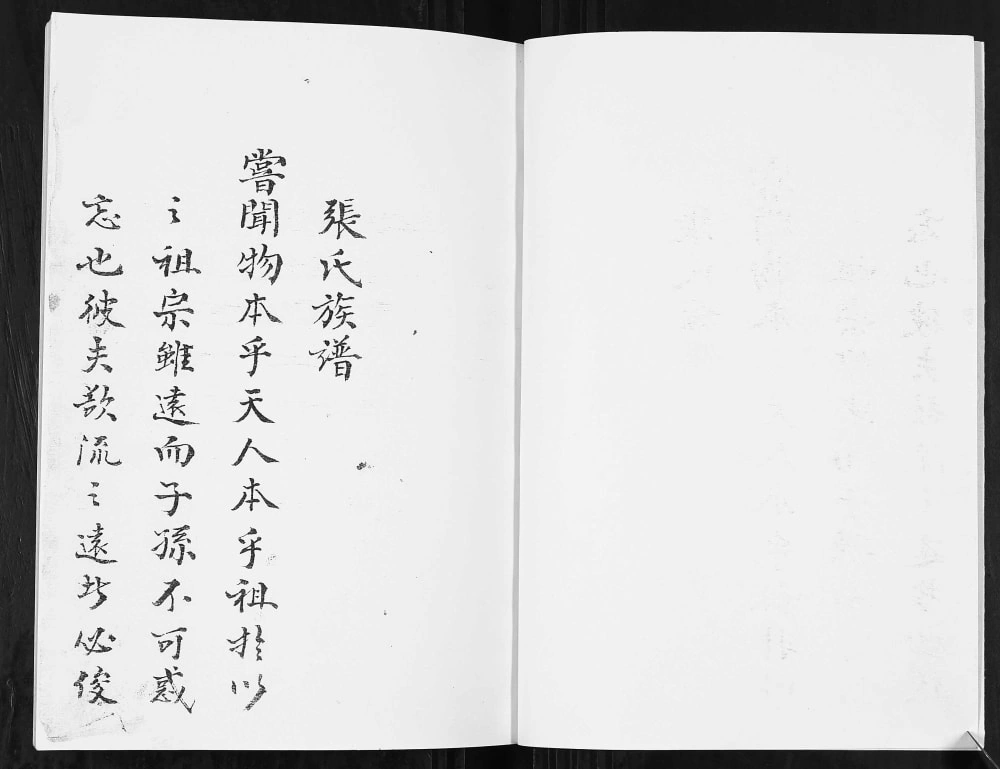 張氏族譜
嘗聞物本乎天人本乎祖於以
之祖宗雖遠而子孫不可惑
忘也彼夫欲流之遠者必俊